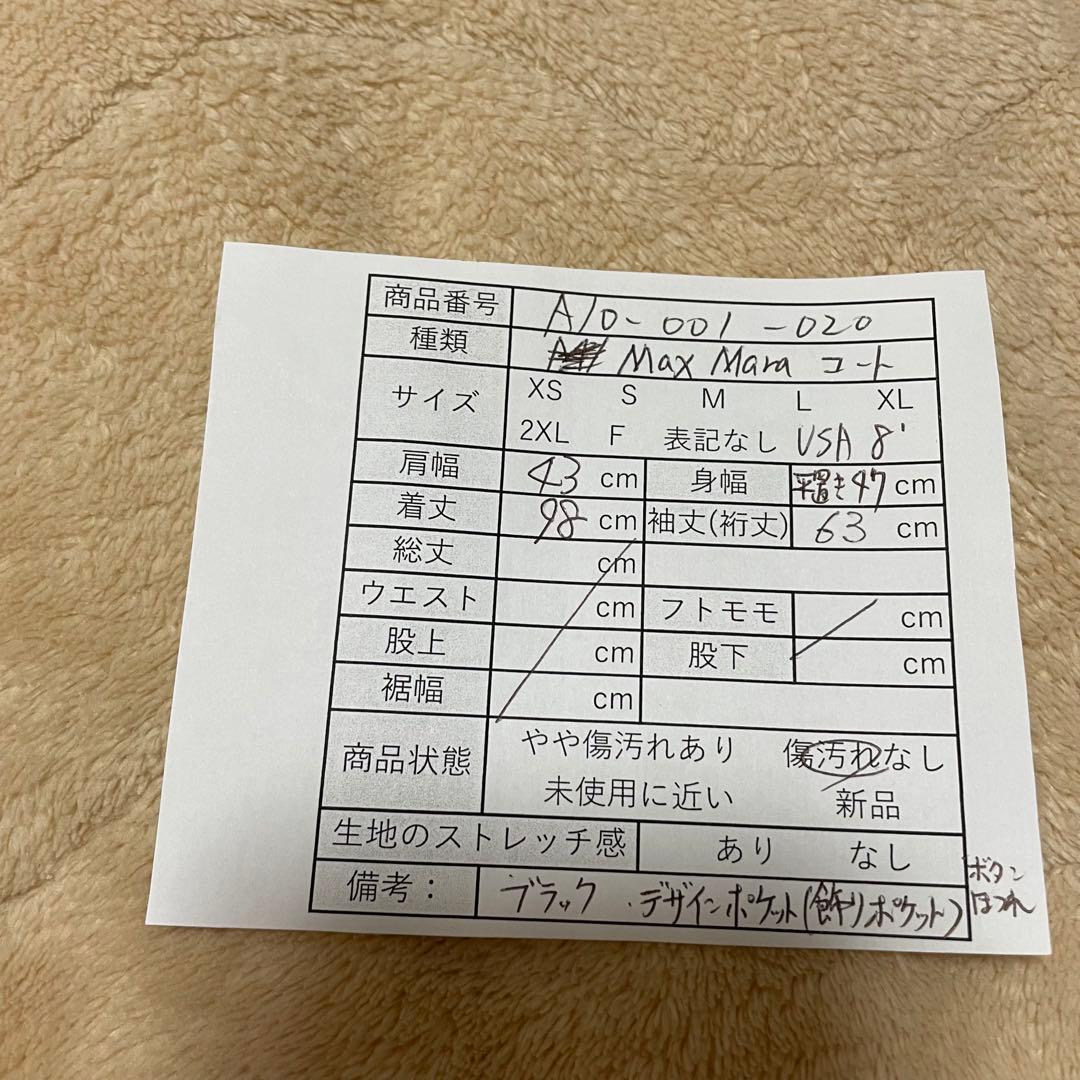 商品番号 A10-001-020
種類 Max Mara コート
サイズ XS S M L XL
2XL F 表記なし USA 8'
肩幅 43 cm 身幅 平置き47 cm
着丈 98 cm 袖丈(裄丈) 63 cm
総丈 cm
ウエスト cm フトモモ cm
股上 cm 股下 cm
裾幅 cm
商品状態 やや傷汚れあり 傷汚れなし
未使用に近い 新品
生地のストレッチ感 あり なし
備考： ブラック デザインポケット(飾りポケット)
ボタン
ほつれ